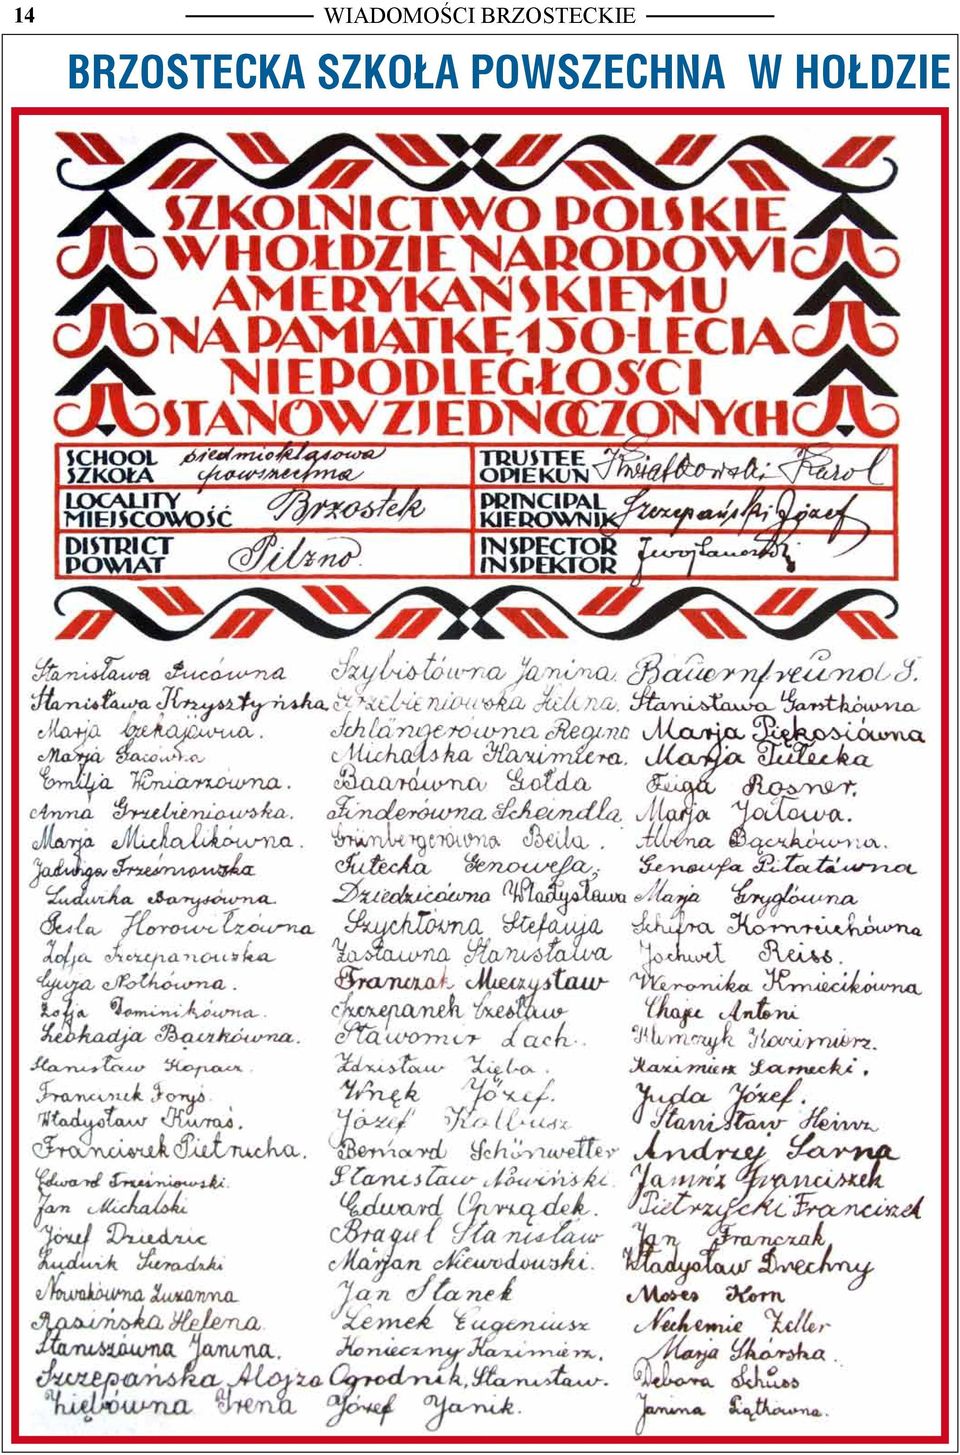 14
WIADOMOŚCI BRZOSTECKIE
BRZOSTECKA SZKOŁA POWSZECHNA W HOŁDZIE
SZKOLNICTWO POLSKIE
W HOŁDZIE NARODOWI
AMERYKAŃSKIEMU
NA PAMIĄTKĘ 150-LECIA
NIEPODLEGŁOŚCI
STANÓW ZJEDNOCZONYCH
SCHOOL
SZKOŁA
siedmioklasowa
powszechna
TRUSTEE
OPIEKUN
Kwiatkowski Karol
LOCALITY
MIEJSCOWOŚĆ
Brzostek
PRINCIPAL
KIEROWNIK
Szczepański Józef
DISTRICT
POWIAT
Pilzno.
INSPECTOR
INSPEKTOR
Stanisława Pucówna
Stanisława Krzysztyńska
Marja Czekajówna.
Marja Gacówna
Emilja Kmiarzówna.
Anna Grzebieniowska.
Marja Michalikówna.
Jadwiga Trześniowska
Ludwika Barysówna.
Pesla Horowitzówna
Zofja Szczepanowska
Nothówna.
Zofja Dominikówna.
Leokadja Bączkówna.
Stanisław Kopacz.
Franciszek Foryś.
Władysław Kuraś.
Franciszek Pietrucha.
Edward Trześniowski.
Jan Michalski
Józef Dziedzic
Ludwik Sieradzki
Nowakówna Zuzanna
Rasińska Helena.
Staniszówna Janina.
Szczepańska Alojza
Ziębówna Irena
Szybistówna Janina.
Grzebieniowska Helena.
Schlängerówna Regina
Michalska Kazimiera.
Baarówna Golda
Finderówna Scheindla.
Grünbergerówna Beila.
Tułecka Genowefa,
Dziedzicówna Władysława
Szychtówna Stefanja
Zastawna Stanisława
Franczak Mieczysław
Szczepanek Czesław
Sławomir Lach.
Zdzisław Zięba.
Wnęk Józef.
Józef Kolbusz
Bernard Schönwetter
Stanisław Nowiński.
Edward Oprządek.
Bragiel Stanisław
Marjan Niewodowski.
Jan Stanek
Lemek Eugeniusz
Konieczny Kazimierz.
Ogrodnik, Stanisław.
Józef Janik.
Bauernfreund S.
Stanisława Garstkówna
Marja Piękosiówna
Marja Tułecka
Feiga Rosner.
Marja Jałowa.
Albina Bączkówna.
Genowefa Pitatówna
Marja Gryglówna
Schifra Kornreichówna
Jochwet Reiss.
Weronika Kmiecikówna
Antoni
Klimczyk Kazimierz.
Kazimierz Sarnecki.
Juda Józef.
Stanisław Heinz
Andrzej Sarna
Jamróz Franciszek
Pietrzycki Franciszek
Jan Franczak
Władysław Drechny
Moses Korn
Nechemie Zeller
Marja Skórska.
Debora Schuss
Janina Piątkówna.